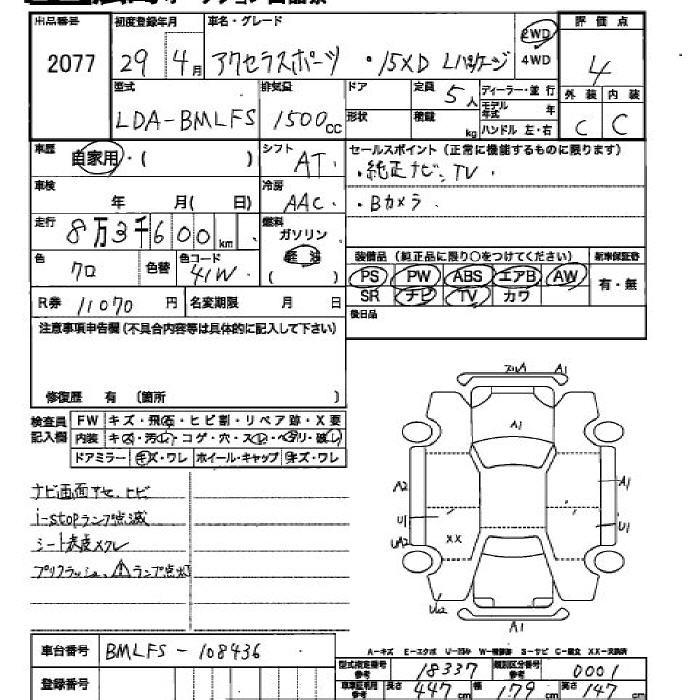 出品番号 初度登録年月 車名・グレード 2WD 評価点
2077 29年4月 アクセラスポーツ ・15XD Lパッケージ 4WD 4
型式 排気量 ドア 定員 5人 ディーラー・並行 外装 内装
LDA-BMLFS 1500cc 形状 積載 kg モデル年式 年 C C
ハンドル 左・右
車歴 自家用・( ) シフト AT セールスポイント(正常に機能するものに限ります)
・純正ナビ、TV
車検 年 月( 日) 冷房 AAC ・Bカメラ
走行 8万3千600km 燃料 ガソリン
軽油
( )
色 クロ 色替 色コード 41W
装備品(純正品に限り○をつけてください) 新車保証書
PS PW ABS エアB AW 有・無
SR ナビ TV カワ
R券 11070円 名変期限 月 日
後日品
注意事項申告欄(不具合内容等は具体的に記入して下さい)
修復歴 有 (箇所 )
検査員記入欄 FW キズ・飛石・ヒビ割・リペア跡・X要
内装 キズ・汚れ・コゲ・穴・スレ・ヘタリ・破れ
ドアミラー キズ・ワレ ホイール・キャップ キズ・ワレ
ナビ画面アセ、ヒビ
i-stopランプ点滅
シート表皮メクレ
プリクラッシュ、⚠ランプ点灯
A1
A1
A2 A1
U1 U1
UA2 XX
U2
A1
車台番号 BMLFS-108436
登録番号
A-キズ E-エクボ U-凹み W-補修跡 S-サビ C-腐食 XX-交換済
型式指定番号 参考 18337 類別区分番号 参考 0001
車車証明用 参考 長さ 447cm 幅 179cm 高さ 147cm